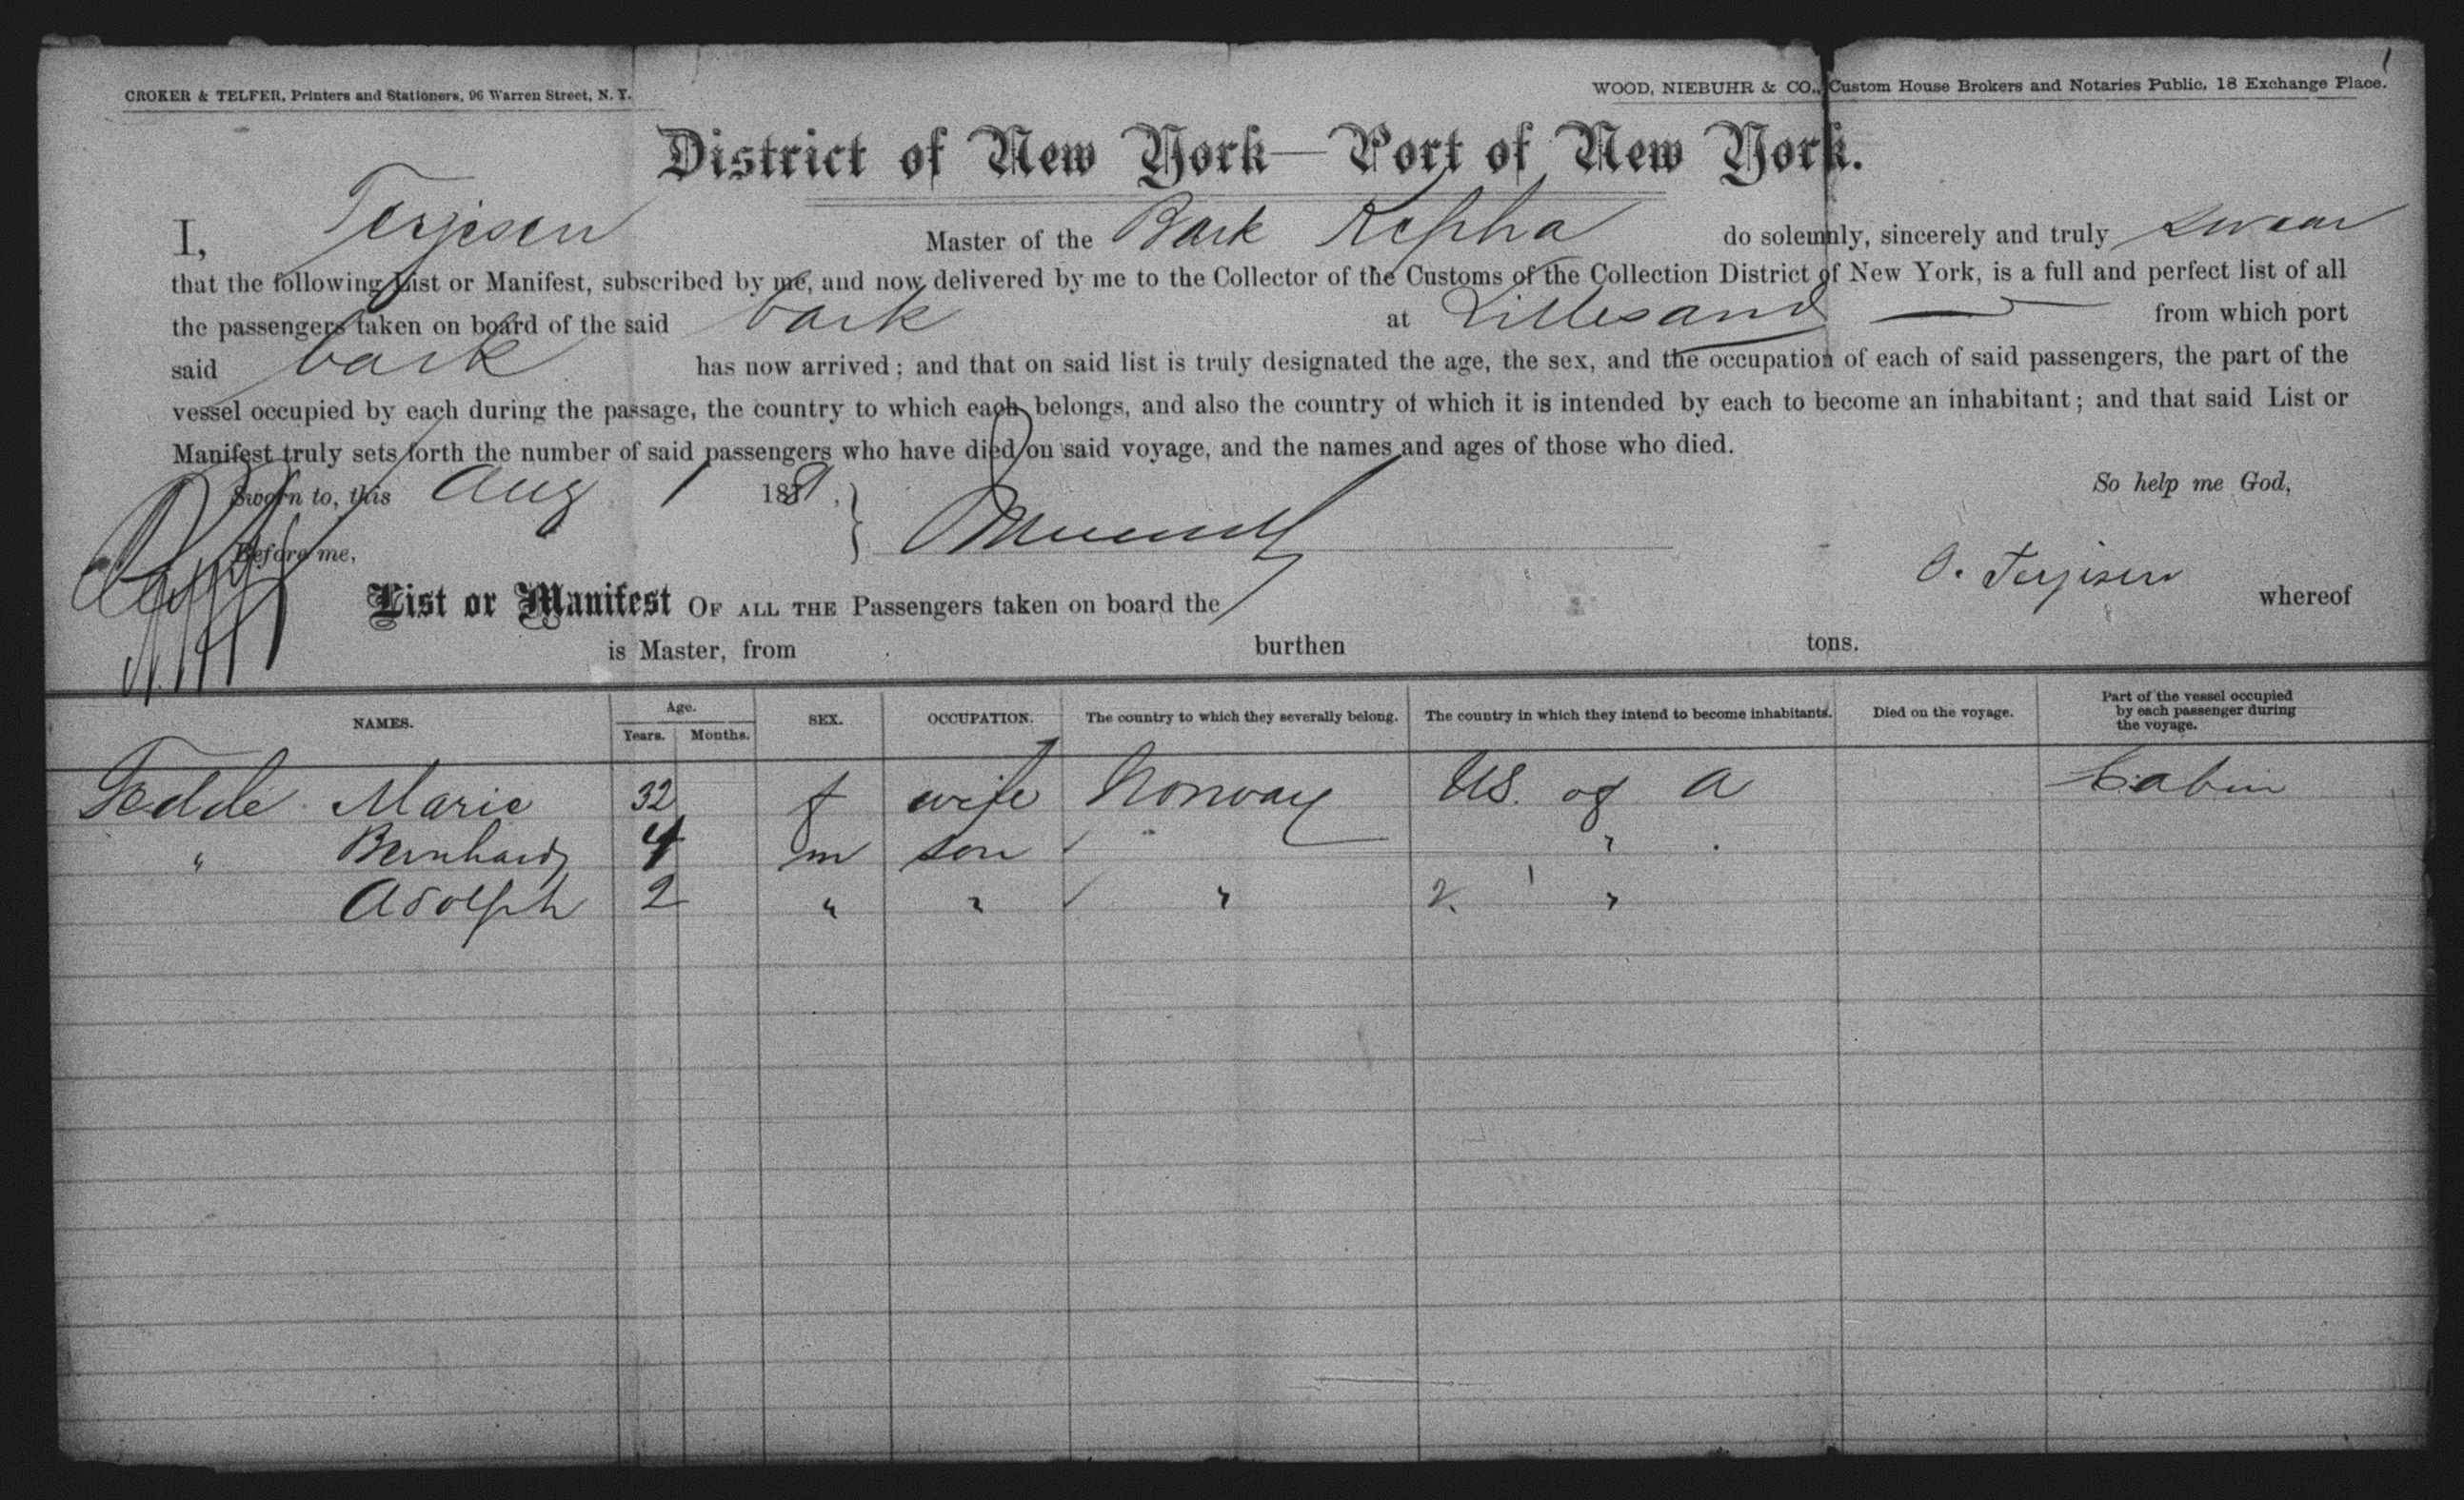 1
CROKER & TELFER, Printers and Stationers, 96 Warren Street, N. Y.
WOOD, NIEBUHR & CO., Custom House Brokers and Notaries Public, 18 Exchange Place.
District of New York—Port of New York.
I, Terjesen Master of the Bark Kepha do solemnly, sincerely and truly swear
that the following List or Manifest, subscribed by me, and now delivered by me to the Collector of the Customs of the Collection District of New York, is a full and perfect list of all
the passengers taken on board of the said bark at Lillesand — from which port
said bark has now arrived; and that on said list is truly designated the age, the sex, and the occupation of each of said passengers, the part of the
vessel occupied by each during the passage, the country to which each belongs, and also the country of which it is intended by each to become an inhabitant; and that said List or
Manifest truly sets forth the number of said passengers who have died on said voyage, and the names and ages of those who died.
So help me God,
Sworn to, this Aug 1 188
Before me,
O. Terjesen
List or Manifest OF ALL THE Passengers taken on board the whereof
is Master, from burthen tons.
NAMES. Age. Years. Months. SEX. OCCUPATION. The country to which they severally belong. The country in which they intend to become inhabitants. Died on the voyage. Part of the vessel occupied by each passenger during the voyage.
Fedde Marie 32 f wife Norway US. of A Cabin
" Bernhard 4 m son " "
Adolph 2 " " " "